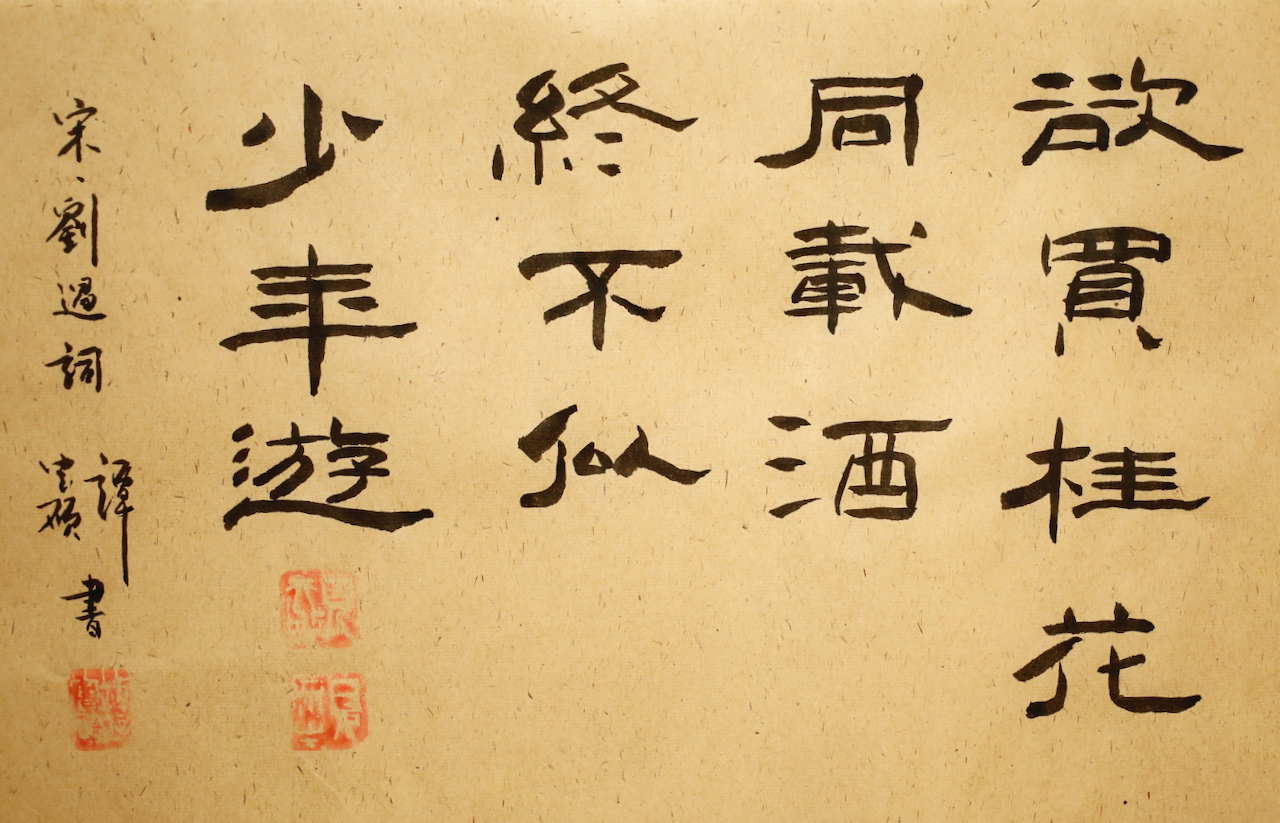 欲買桂花
同載酒
終不似
少年遊
宋劉過詞 譚寶碩書